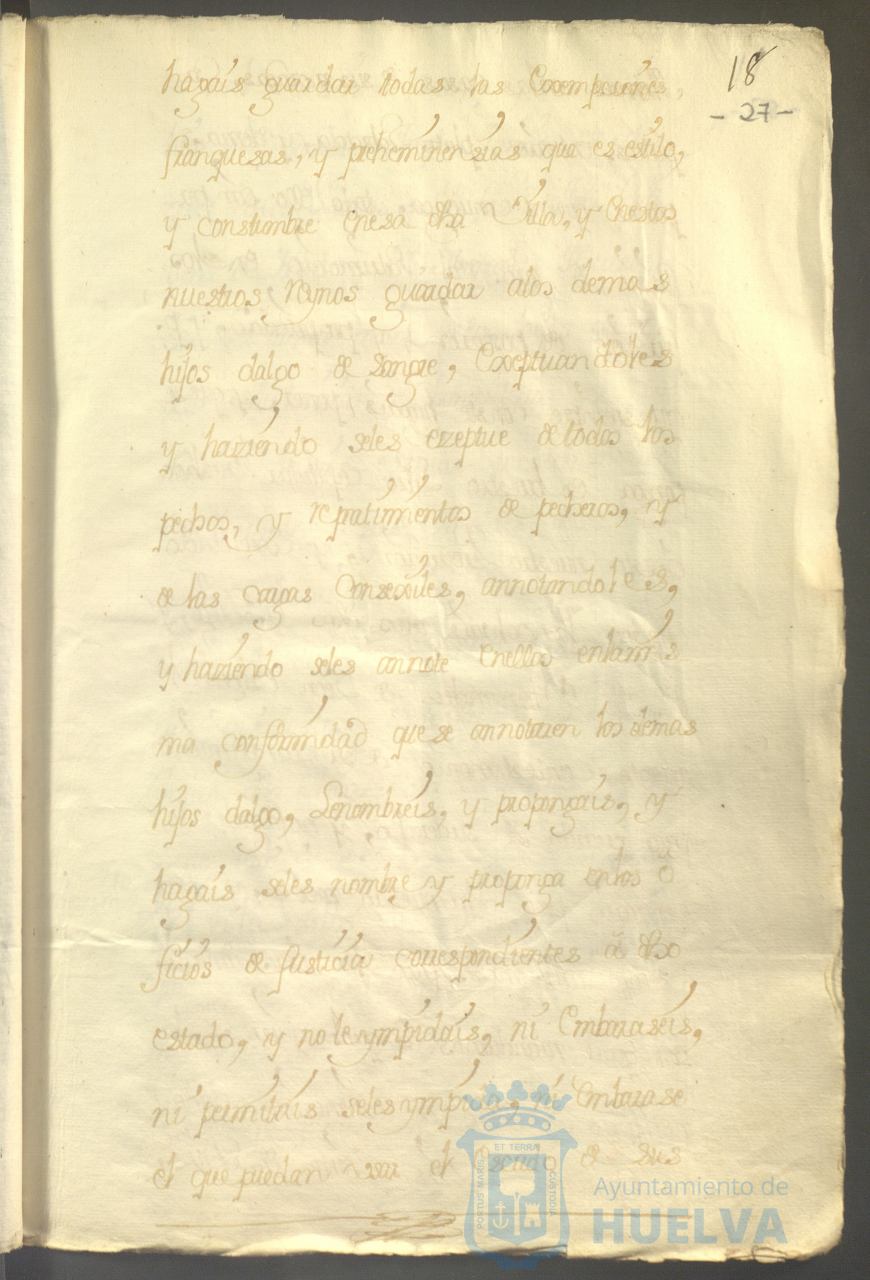 18
- 27 -
hagaís guardar todas las Exempciones,
franquezas, y preheminenzias que es estilo,
y constumbre enesa dha Villa, y Enestos
nuestros Reynos guardar alos demas
hijos dalgo de sangre, Exeptuandoles
y haziendo seles ezeptue de todos los
pechos, y repartimientos de pecheros, y
de las cargas Consexiles, annotandoles,
y haziendo seles annote Enellos enlamis
ma conformidad que se annotaren los demas
hijos dalgo, Lenombreis, y propongais, y
hagaís seles nombre y proponga enlos o
ficios de Justicia correspondientes á dho
estado, y no le ympidais, ni Embaraseis,
ni permitais seles ympida, ni Embarase
el que puedan usar el Escudo de sus
ET TERRAE
PORTUS MARIS
CUSTODIA
Ayuntamiento de
HUELVA